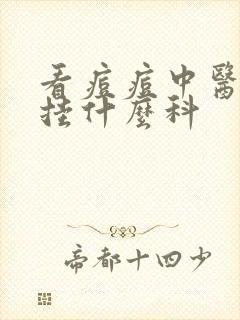 看痘痘中醫
挂什麼科
帝都十四少